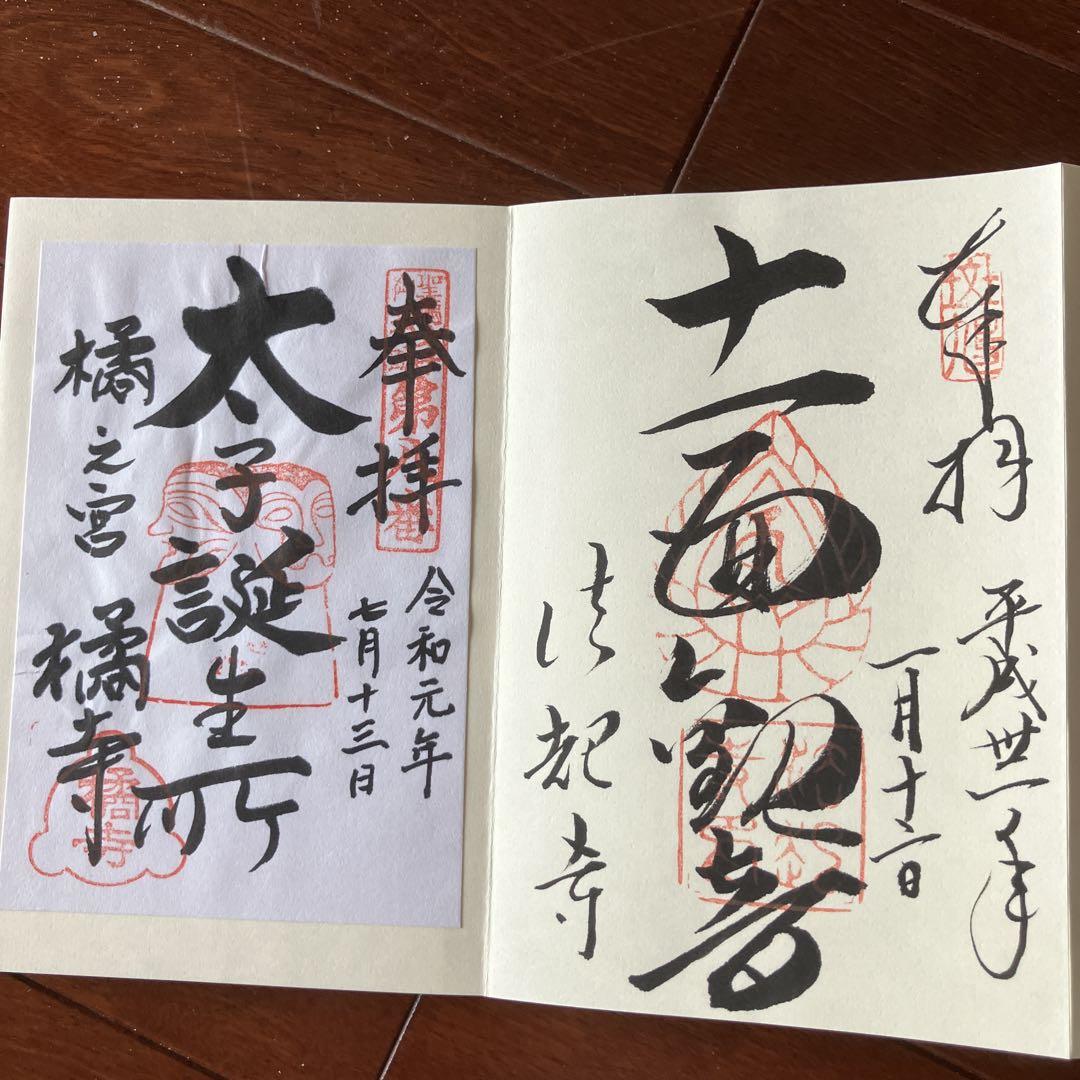 奉拝
平成丗一年
一月十二日
十一面観音
法起寺
奉拝
令和元年
七月十三日
太子誕生所
橘之宮
橘寺
橘寺